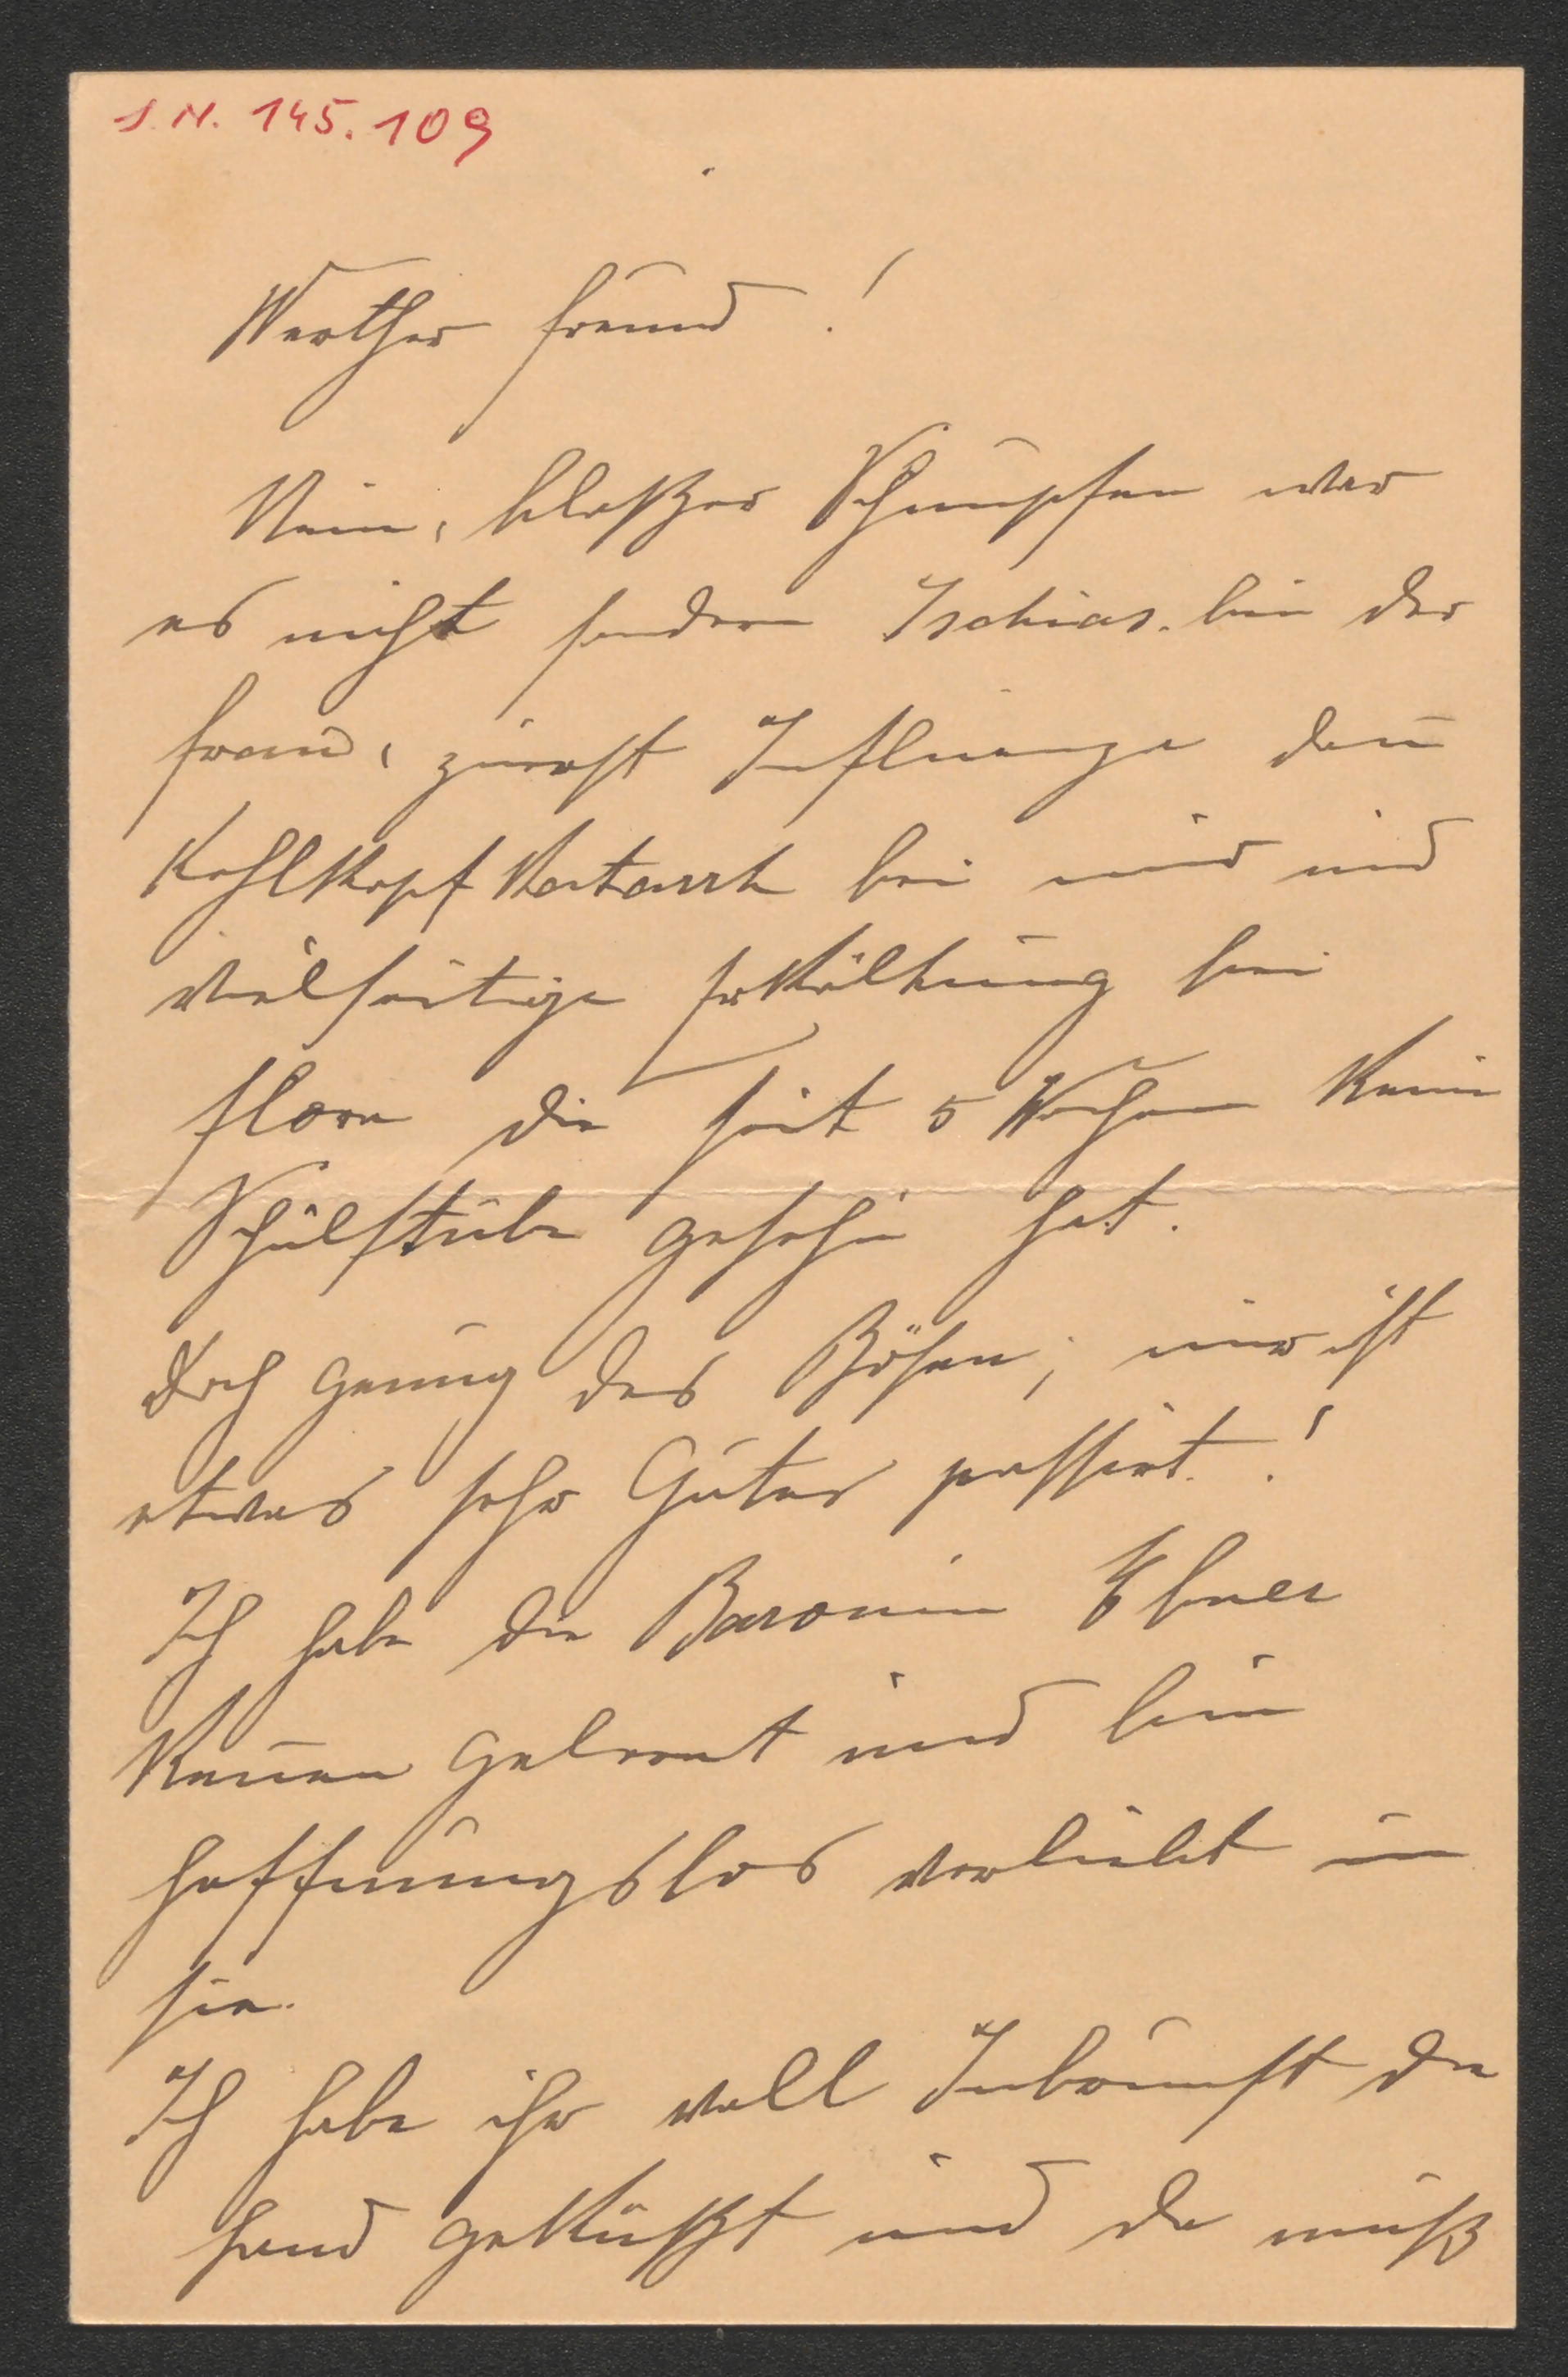 I.N. 145.109
Werther Freund!
Nein, bloßer Schnupfen war
es nicht sondern Ischias bei der
Frau, zuerst Influenza dan̄
Kehlkopf Katarrh bei mir und
vielseitige Erkältung bei
Flora die seit 5 Wochen keine
Schulstube gesehn hat.
Doch genug des Bösen; mir ist
etwas sehr Gutes passirt!
Ich habe die Baronin Ebner
ken̄en gelernt und bin
hoffnungslos verliebt in
sie.
Ich habe ihr voll Inbrunst die
Hand geküßt und da muß